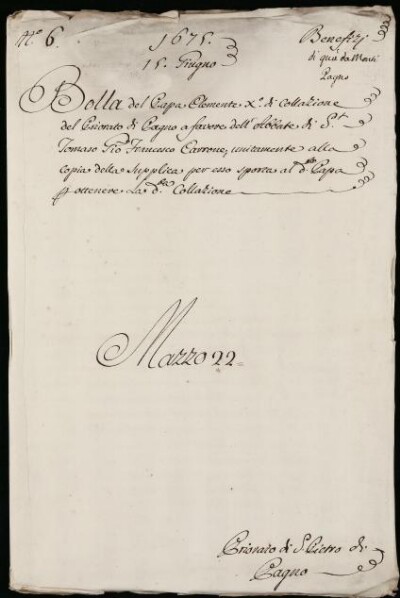 N.º 6.
1675.
15. Giugno
Benefizj
di quà da Monti
Pagno
Bolla del Papa Clemente X.º di Collazione
del Priorato di Pagno a favore dell'Abbate di S.t
Tomaso Gio Francesco Carrone; unitamente alla
copia della Supplica per esso sporta al d.º Papa
per ottenere la d.a Collazione
Mazzo 22=
Priorato di S. Pietro di
Pagno